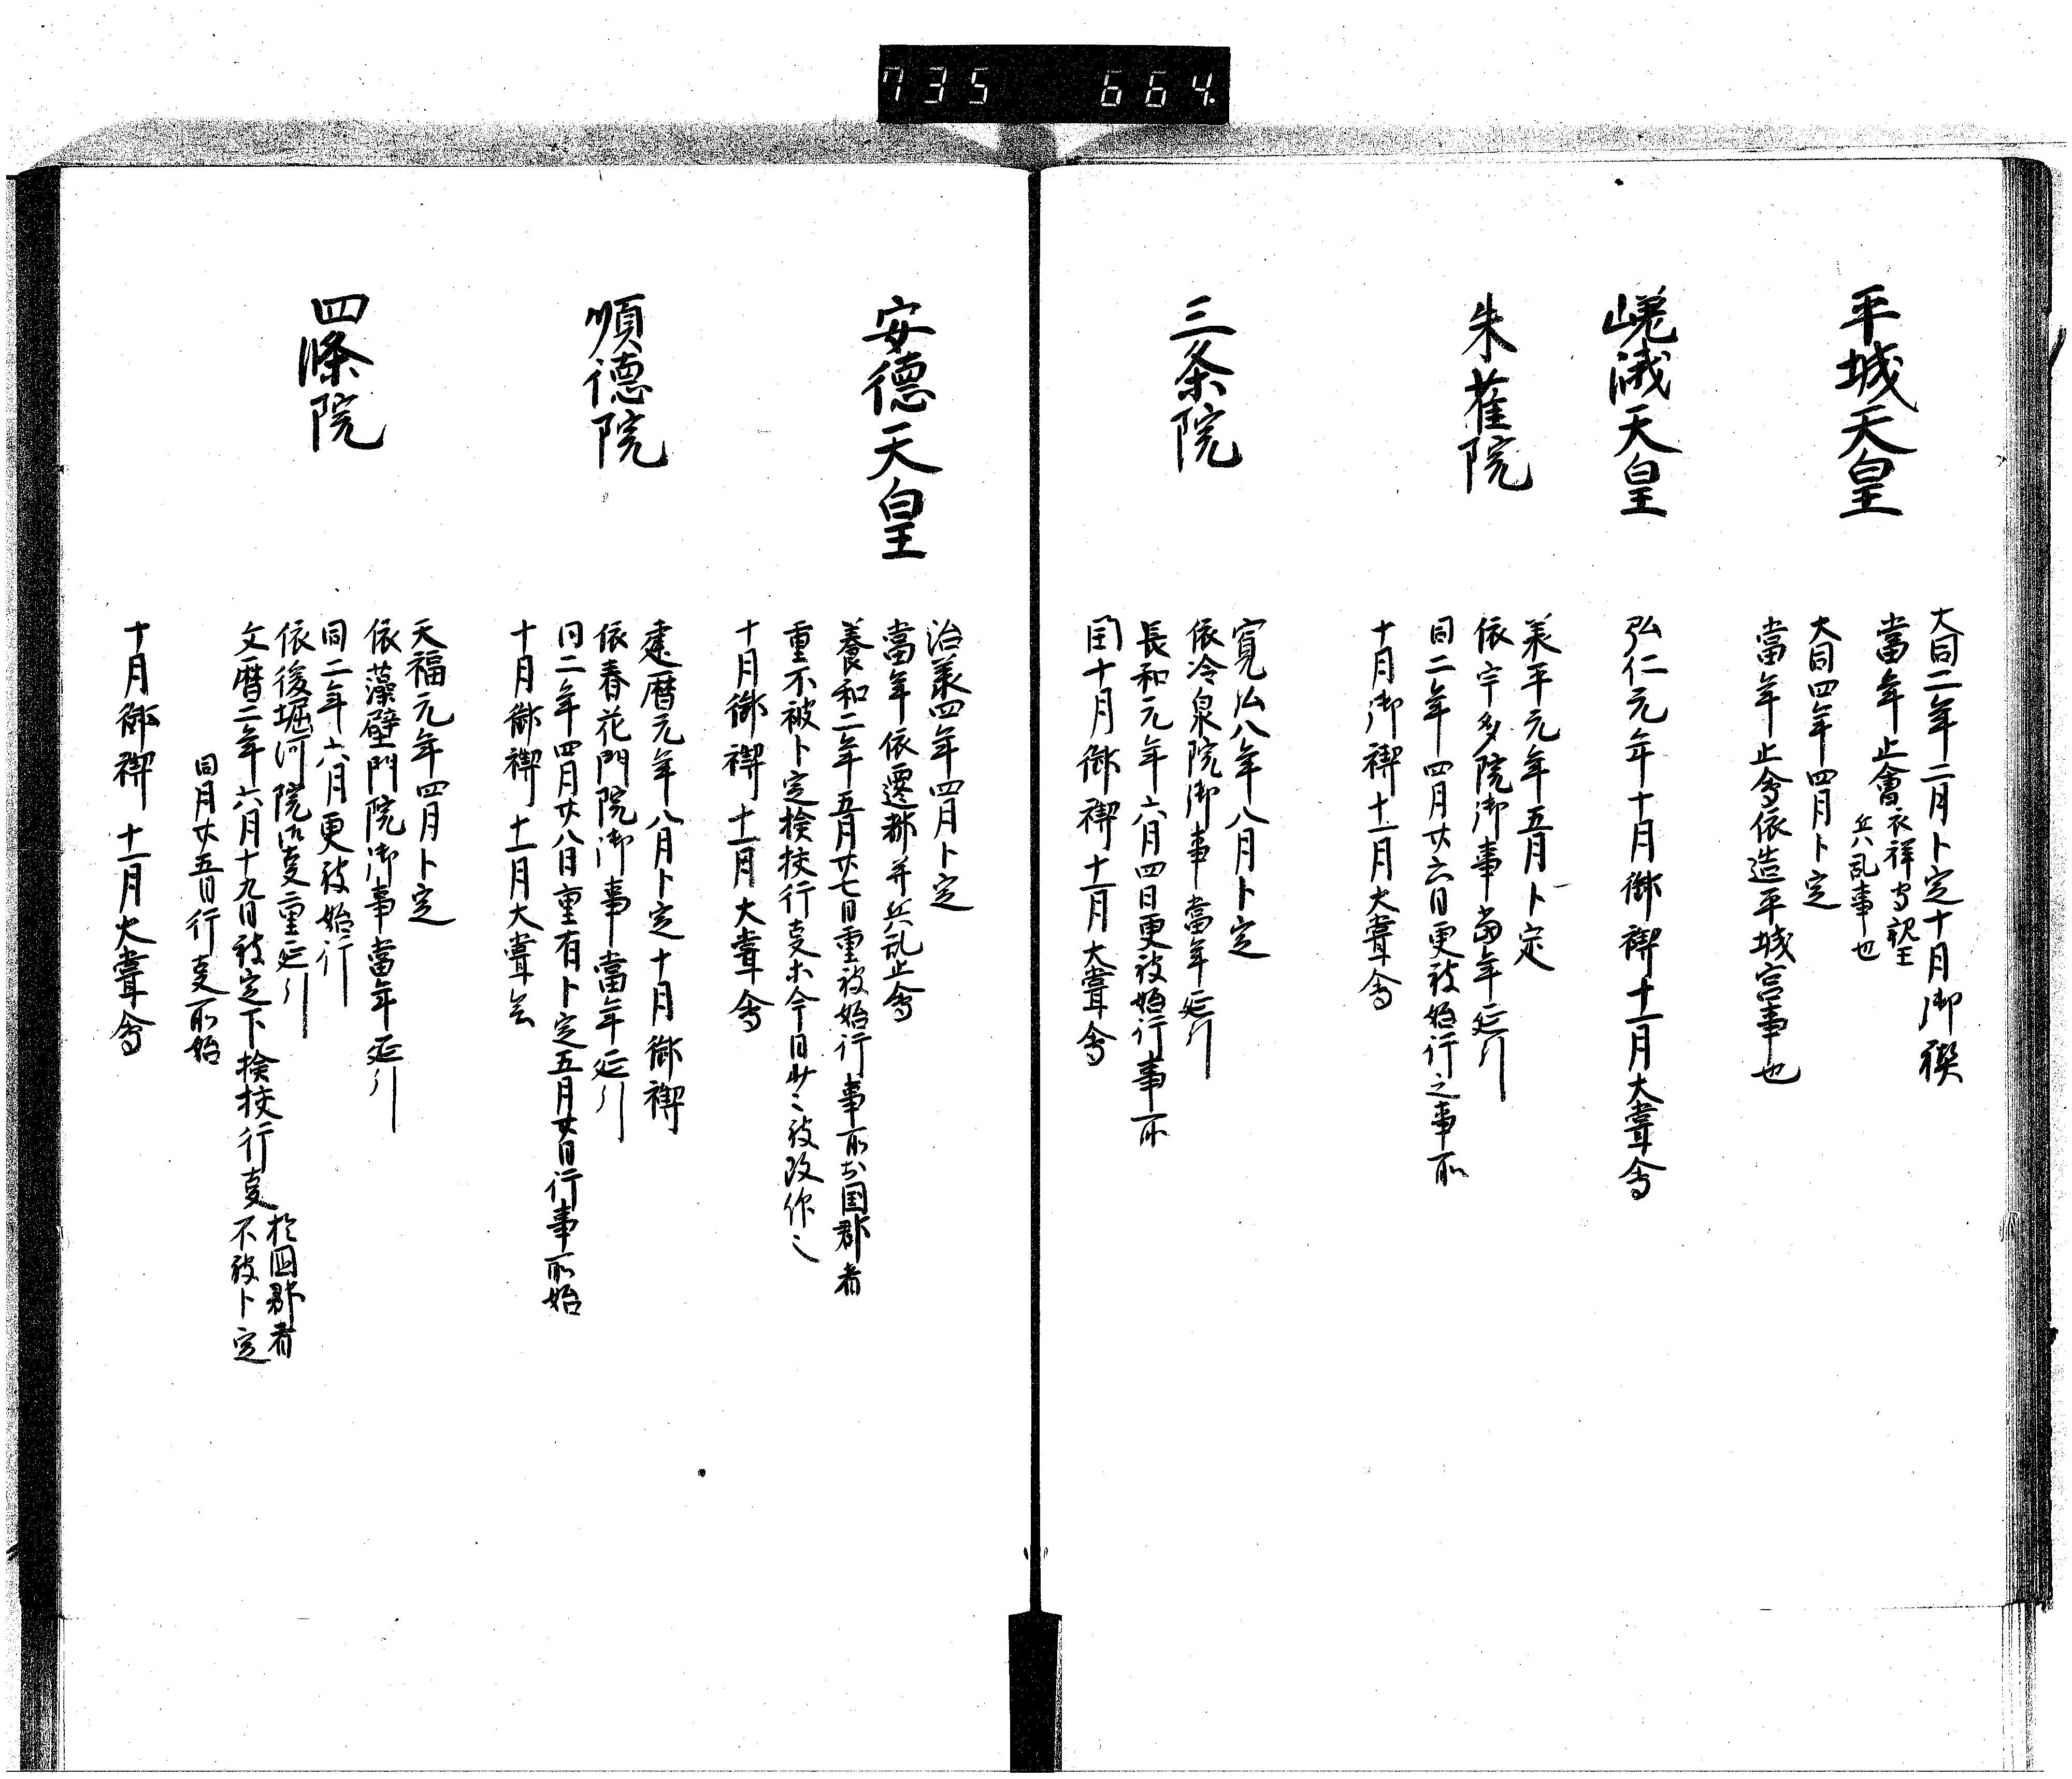 735 664.
平城天皇
大同二年二月卜定十月御禊
當年止會依祥子親王
兵乱事也
大同四年四月卜定
當年止會依造平城宮事也
嵯峨天皇
弘仁元年十月御禊十一月大甞會
朱雀院
羕平元年五月卜定
依宇多院御事當年延引
同二年四月廿六日更被始行之事所
十月御禊十一月大甞會
三条院
寛弘八年八月卜定
依冷泉院御事當年延引
長和元年六月四日更被始行事所
閏十月御禊十一月大甞會
安德天皇
治羕四年四月卜定
當年依遷都并兵乱止會
養和二年五月廿七日重被始行事所於国郡者
重不被卜定検挍行事木今日少々被改作之
十月御禊十一月大甞會
順德院
建暦元年八月卜定十月御禊
依春花門院御事當年延引
同二年四月廿八日重有卜定五月廿日行事所始
十月御禊十一月大甞会
四條院
天福元年四月卜定
依藻壁門院御事當年延引
同二年六月更被始行
依後堀河院御事重延引
文暦二年六月十九日被定下検挍行事
於国郡者
不被卜定
同月廿五日行事所始
十月御禊十一月大甞會